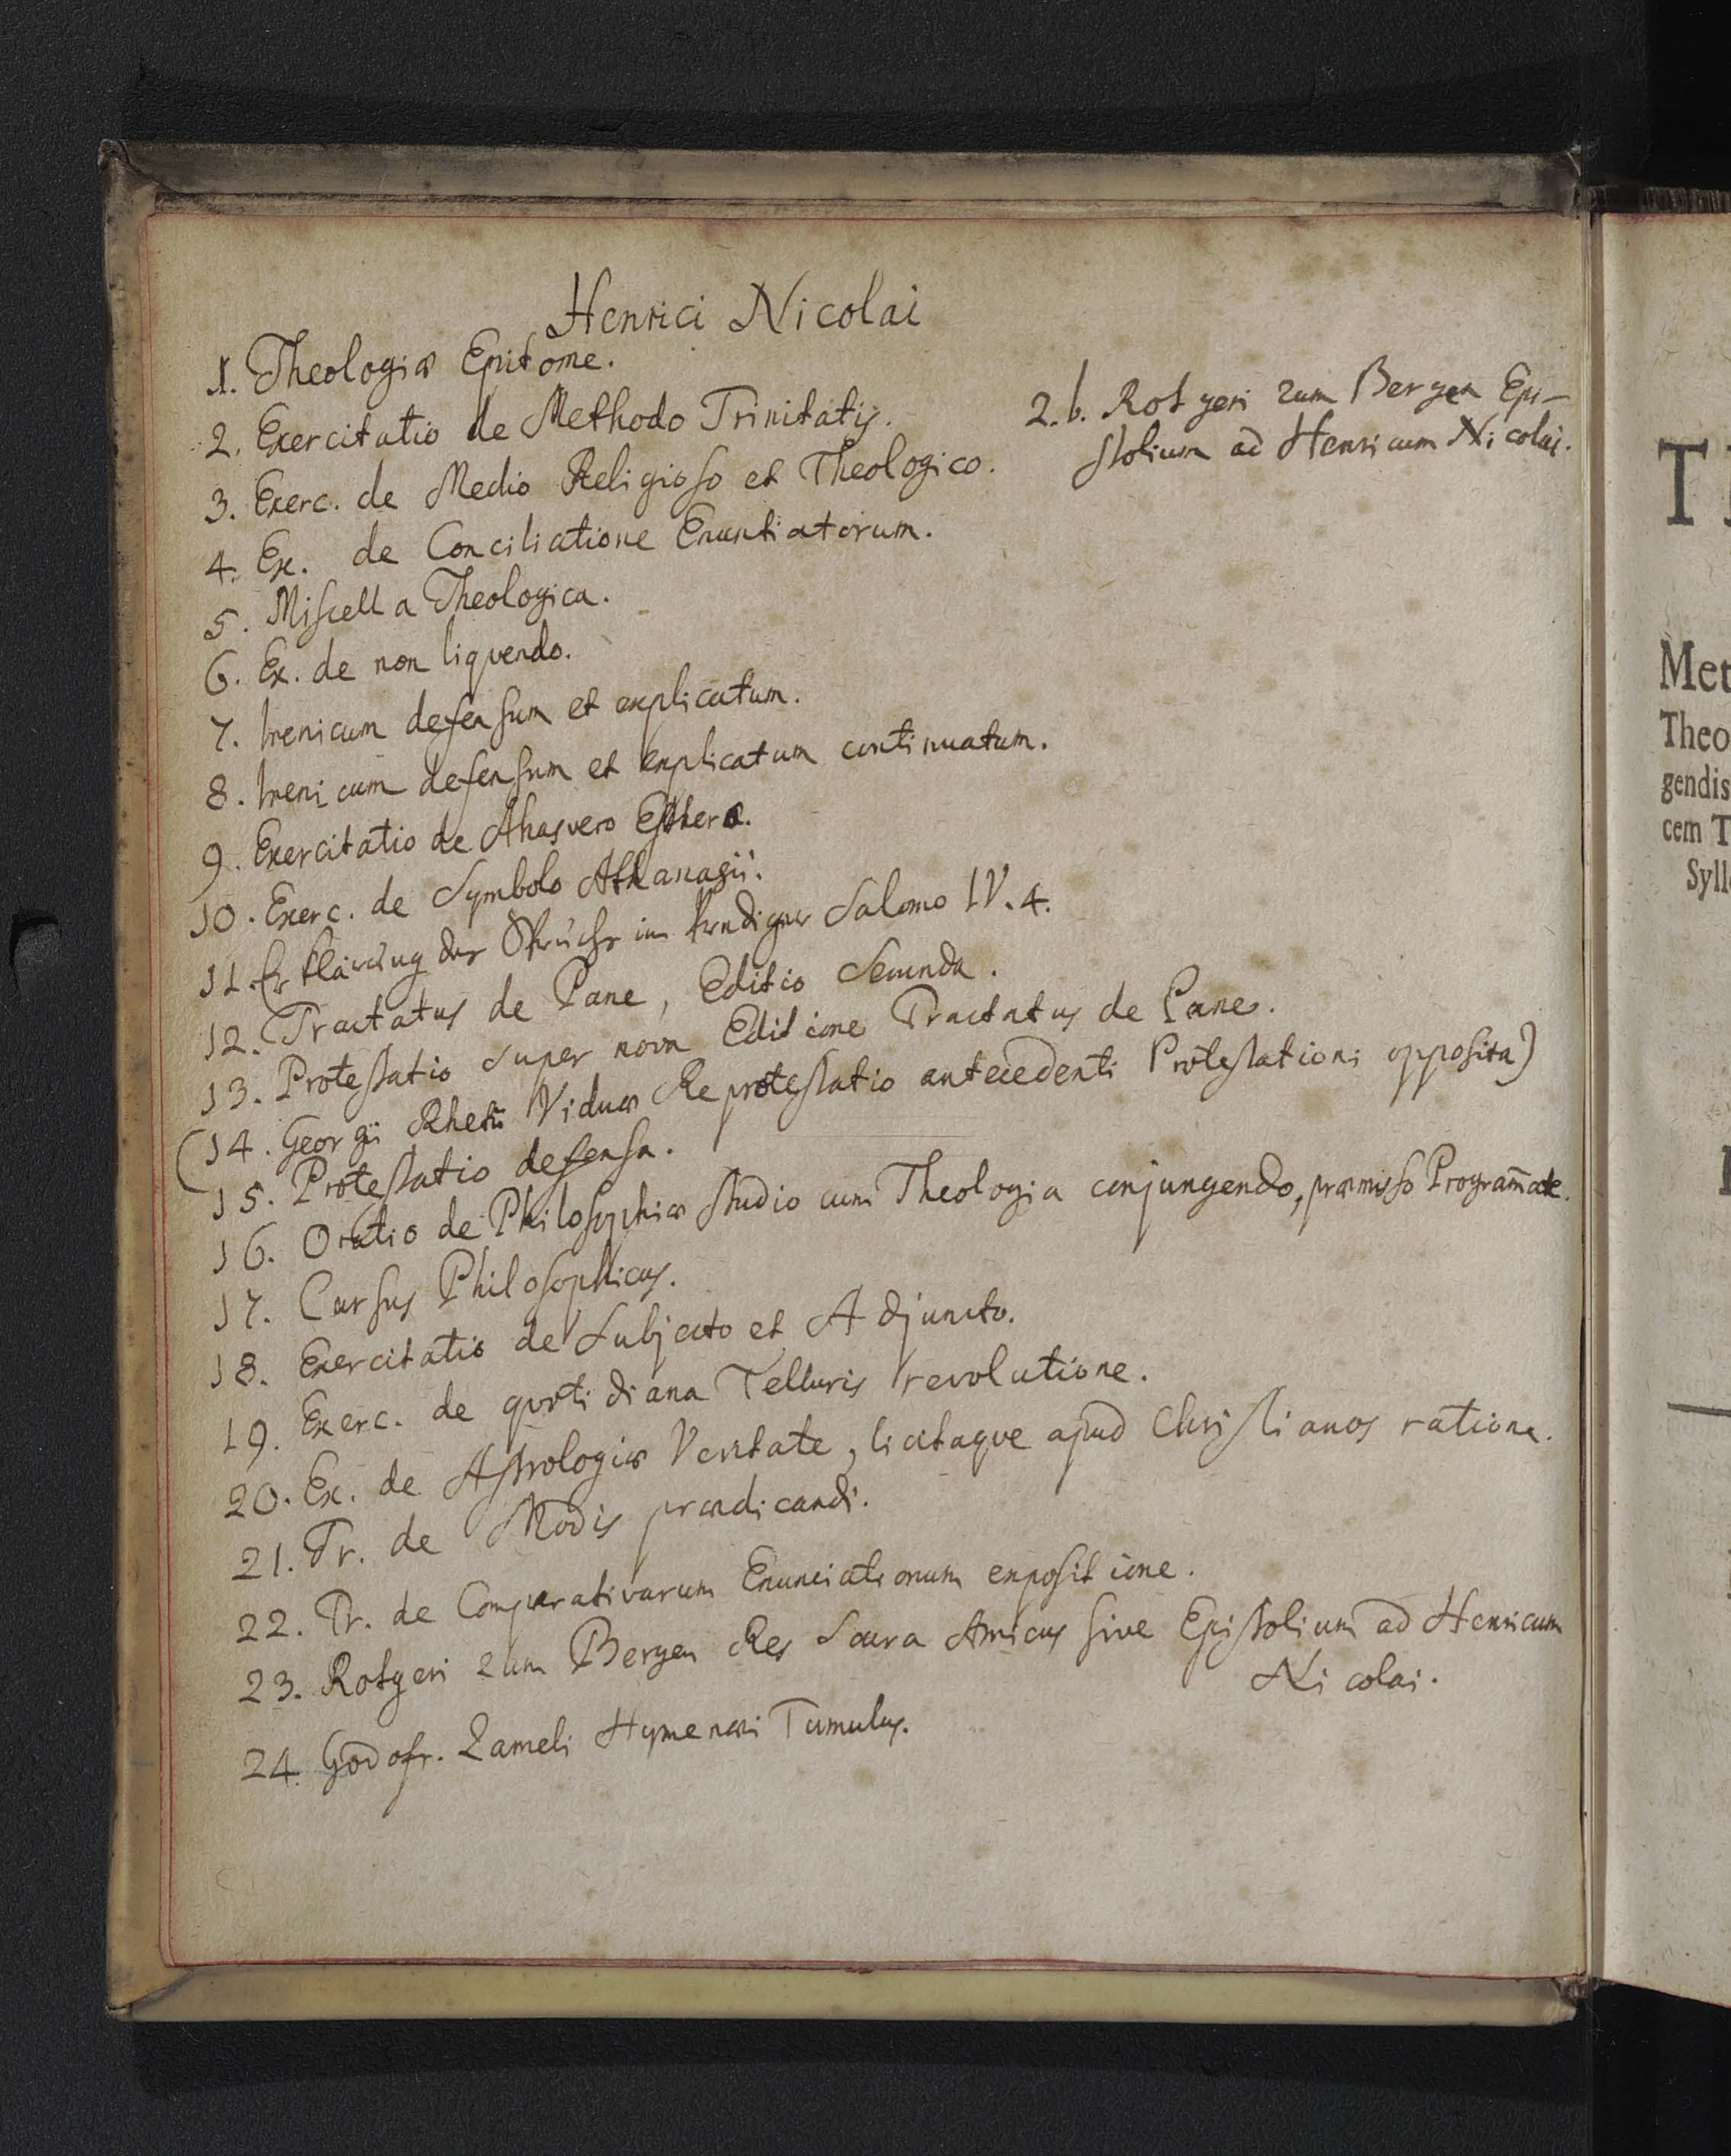 Henrici Nicolai
1. Theologiæ Epitome.
2. Exercitatio de Methodo Trinitatis.
2.b. Rotgeri zum Bergen Epi-
stolium ad Henricum Nicolai.
3. Exerc. de Medio Religioso et Theologico.
4. Ex. de Conciliatione Enuntiatorum.
5. Miscella Theologica.
6. Ex. de non liquendo.
7. Irenicum defensum et explicatum.
8. Irenicum defensum et explicatum continuatum.
9. Exercitatio de Ahasvero Estheræ.
10. Exerc. de Symbolo Athanasii.
11. Erklärung der Sprüche im Prediger Salomo IV. 4.
12. Tractatus de Pane, Editio Secunda.
13. Protestatio super nova Editione Tractatus de Pane.
(14. Georgii Rhetii Viduæ Reprotestatio antecedenti Protestationi opposita)
15. Protestatio defensa.
16. Oratio de Philosophiæ studio cum Theologia conjungendo, præmisso Programāte.
17. Cursus Philosophicus.
18. Exercitatio de Subjecto et Adjuncto.
19. Exerc. de quotidiana Telluris revolutione.
20. Ex. de Astrologiæ Veritate, licitaque apud Christianos ratione.
21. Tr. de Modis prædicandi.
22. Tr. de Comparativarum Enunciationum expositione.
23. Rotgeri zum Bergen Res Sacra Amicus sive Epistolium ad Henricum
Nicolai.
24. Godofr. Zameli Hymenæi Tumulus.
T
Met
Theo
gendis
cem T
Syll